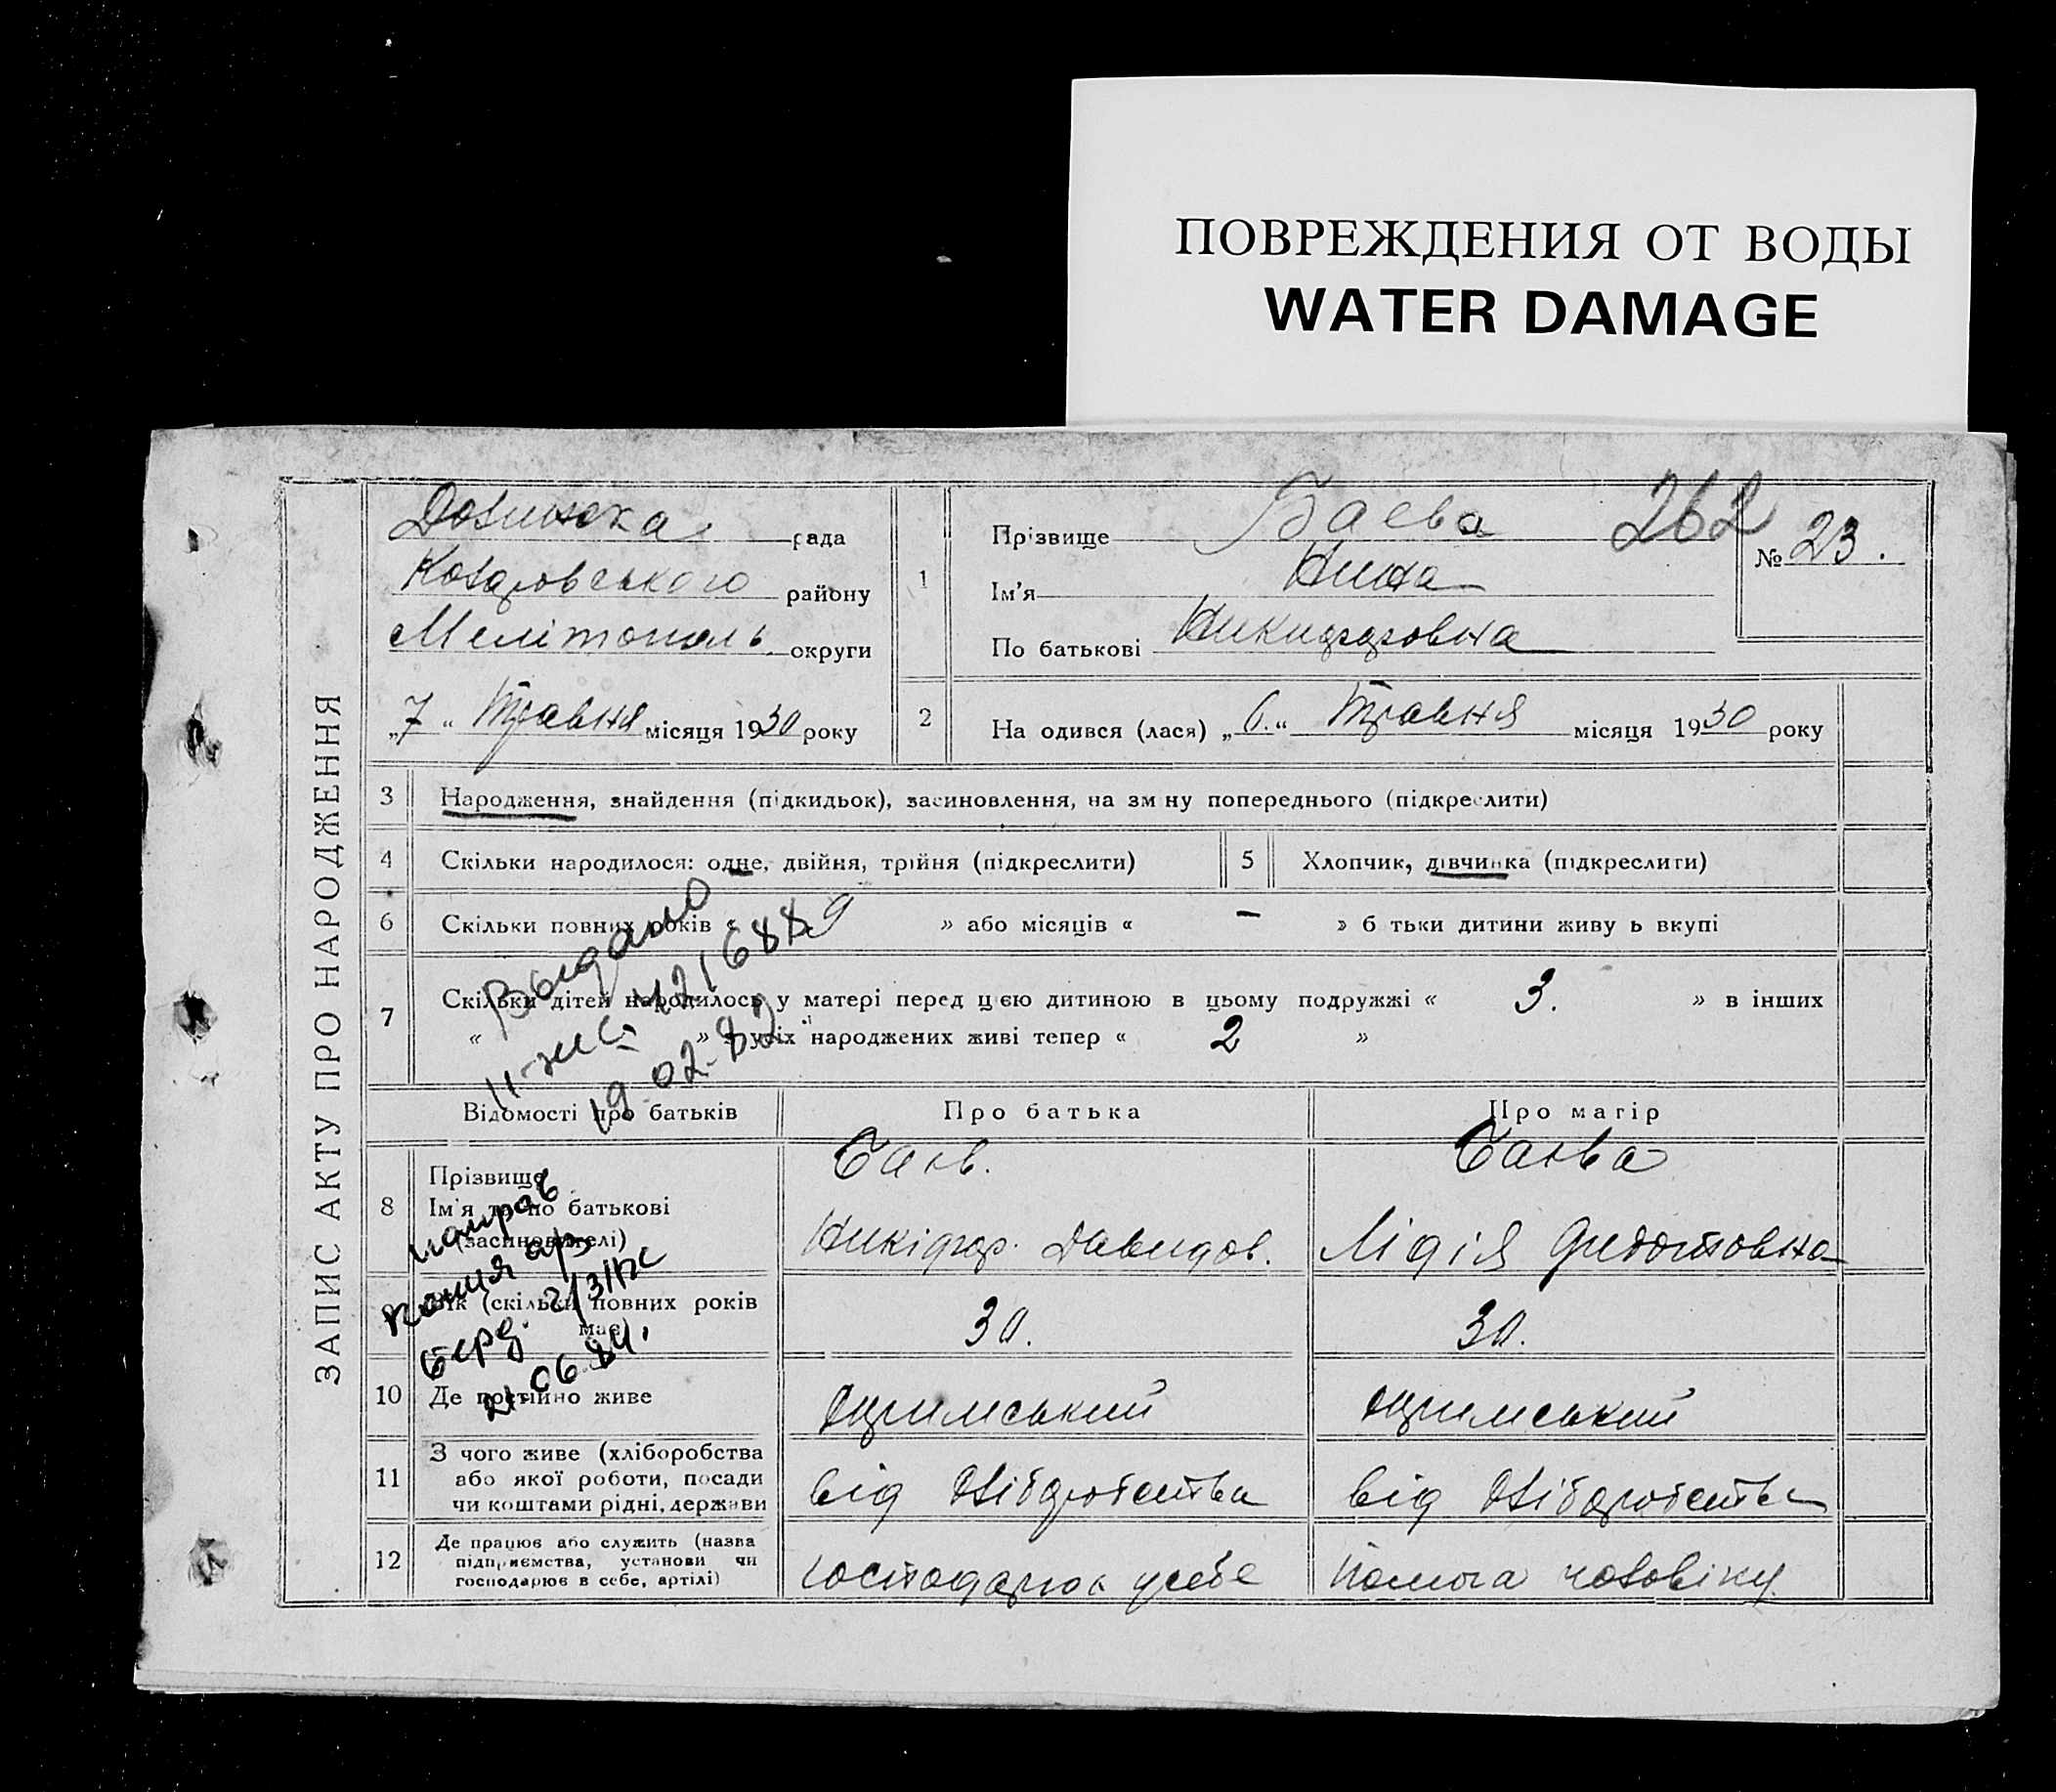 ПОВРЕЖДЕНИЯ ОТ ВОДЫ
WATER DAMAGE
ЗАПИС АКТУ ПРО НАРОДЖЕННЯ
рада
району
Мелітополь округи
„7“ Травня місяця 1930 року
262
№ 23.
1
Прізвище Баева
Ім'я Нина
По батькові
2 На одився (лася) „6.“ Травня місяця 1930 року
3 Народження, знайдення (підкидьок), засиновлення, на зм ну попереднього (підкреслити)
4 Скільки народилося: одне, двійня, трійня (підкреслити)
5 Хлопчик, дівчинка (підкреслити)
6 Скільки повних років « » або місяців « – » б тьки дитини живу ь вкупі
7 Скільки дітей народилось у матері перед цією дитиною в цьому подружжі « 3. » в інших
« » усіх народжених живі тепер « 2 »
Выдано
421688
19.02.82
Відомості про батьків Про батька Про матір
8 Прізвище
Ім'я та по батькові
(засиновителі)
Баєв. Баєва
Нікіфор. Давидов. Лідія Федотовна
Вік (скільки повних років
має)
30. 30.
направ
копия
21.06.84.
10 Де постійно живе
11 З чого живе (хліборобства
або якої роботи, посади
чи коштами рідні, держави
від хліборобства від хліборобства
12 Де працює або служить (назва
підприємства, установи чи
господарює в себе, артілі)
господарює у себе помога чоловіку